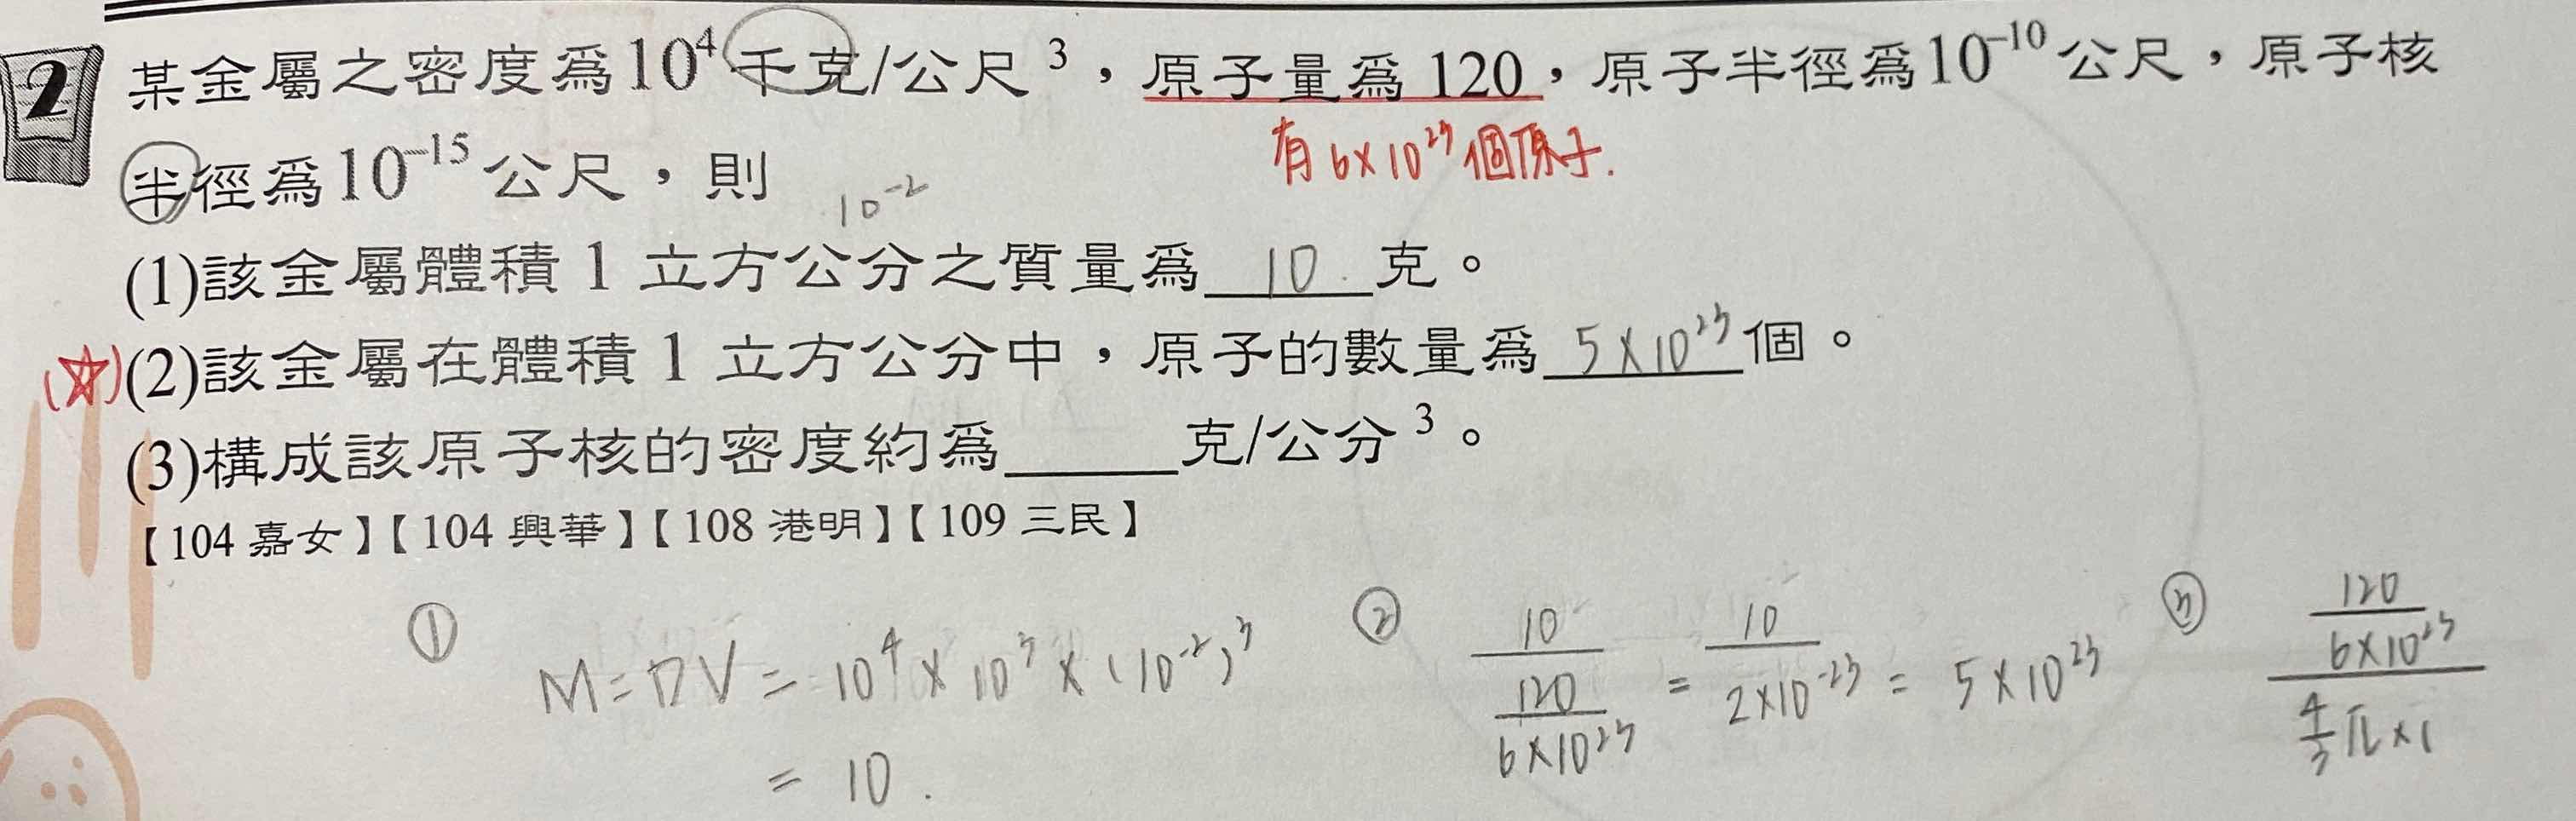 2 某金屬之密度為10⁴千克/公尺³，原子量為120，原子半徑為10⁻¹⁰公尺，原子核
有6×10²³個原子.
半徑為10⁻¹⁵公尺，則
10⁻²
(1)該金屬體積1立方公分之質量為 10 克。
(☆)(2)該金屬在體積1立方公分中，原子的數量為 5×10²³ 個。
(3)構成該原子核的密度約為_____克/公分³。
【104嘉女】【104興華】【108港明】【109三民】
① M=DV=10⁴×10³×(10⁻²)³
=10.
② 10/(120/(6×10²³)) = 10/(2×10⁻²³) = 5×10²³
③ (120/(6×10²³))/((4/3)π×1